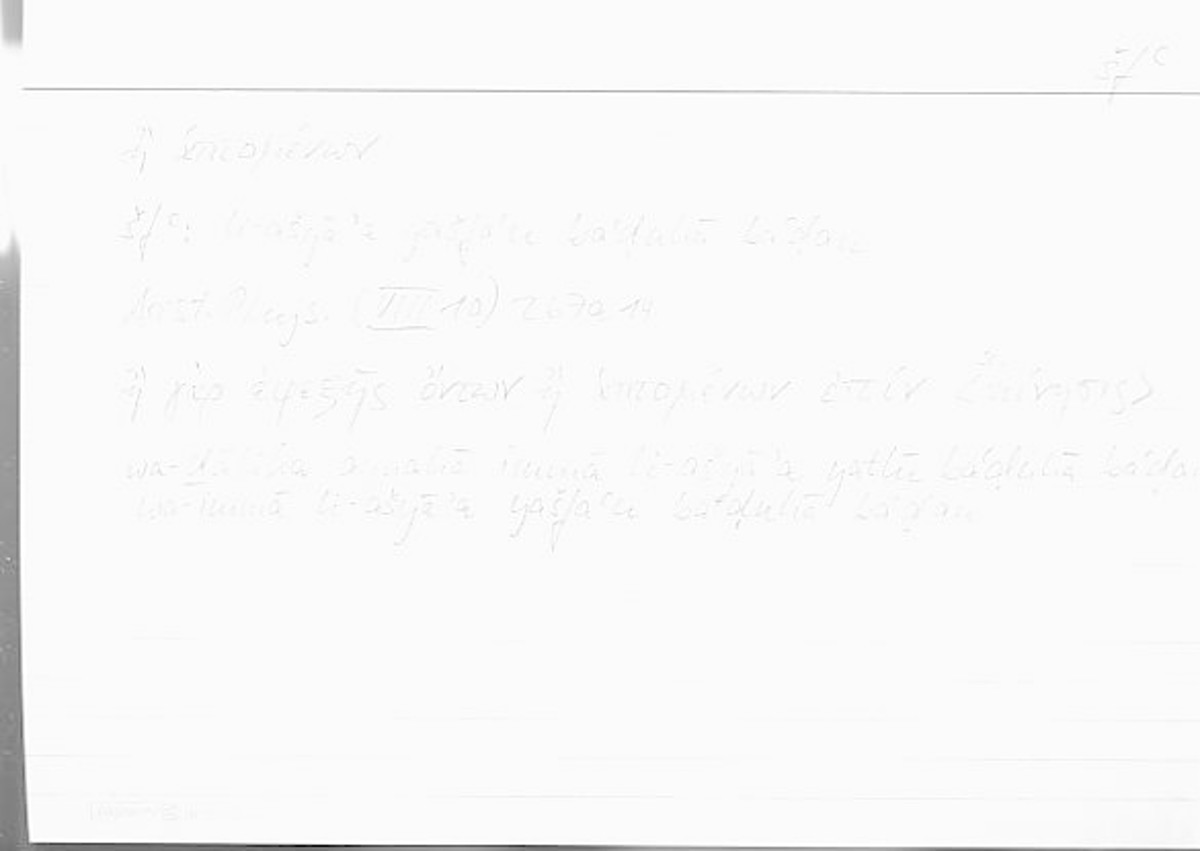 šfʿ
ἢ ἁπτομένων
šfʿ: li-ašyāʾa yašfaʿu baʿḍuhā baʿḍan
Arist. Phys. (VIII 10) 267a 14
ἢ γὰρ ἐφεξῆς ὄντων ἢ ἁπτομένων ἐστὶν ἡ κίνησις>
wa-ḏālika annahā immā li-ašyāʾa yatlū baʿḍuhā baʿḍan
wa-immā li-ašyāʾa yašfaʿu baʿḍuhā baʿḍan